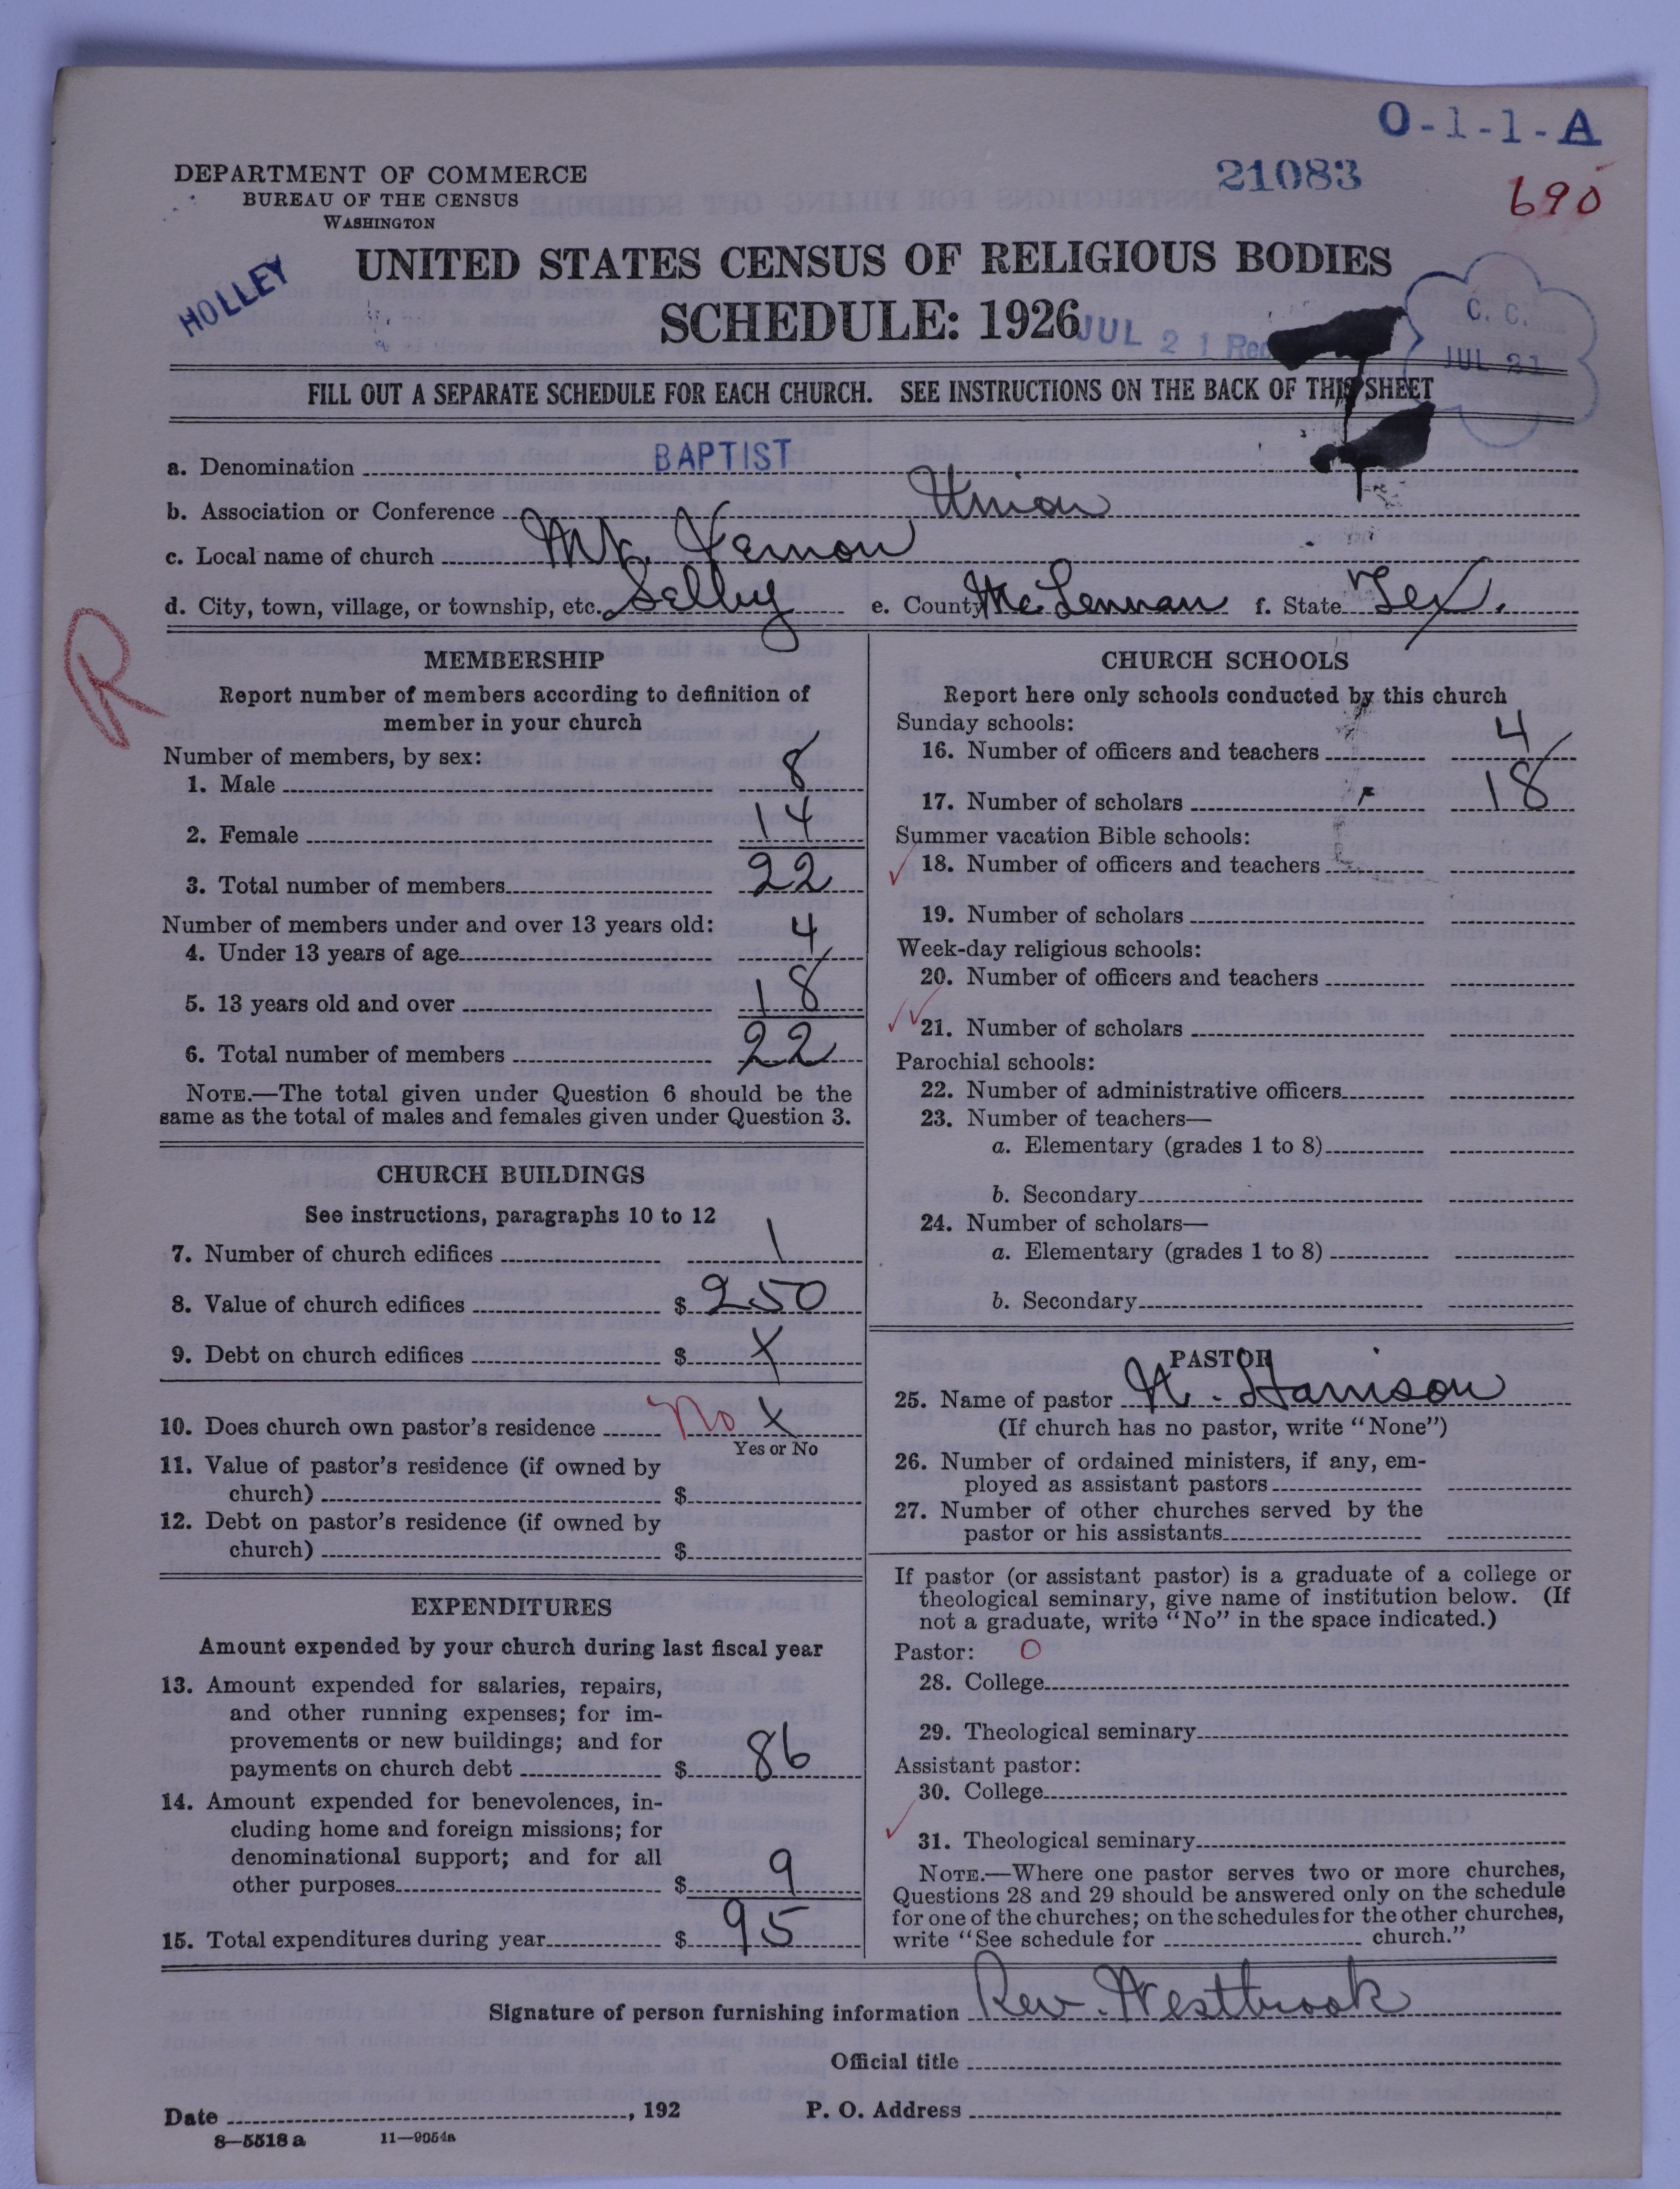 O-1-1-A
DEPARTMENT OF COMMERCE
BUREAU OF THE CENSUS
WASHINGTON
21083
690
HOLLEY
UNITED STATES CENSUS OF RELIGIOUS BODIES
SCHEDULE: 1926
JUL 21 Rec
C. C.
JUL 21
FILL OUT A SEPARATE SCHEDULE FOR EACH CHURCH. SEE INSTRUCTIONS ON THE BACK OF THIS SHEET
a. Denomination BAPTIST
b. Association or Conference Union
c. Local name of church Mt. Vernon
d. City, town, village, or township, etc. Selby e. County McLennan f. State Tex.
R
MEMBERSHIP
Report number of members according to definition of
member in your church
Number of members, by sex:
1. Male 8
2. Female 14
3. Total number of members 22
Number of members under and over 13 years old:
4. Under 13 years of age 4
5. 13 years old and over 18
6. Total number of members 22
NOTE.—The total given under Question 6 should be the
same as the total of males and females given under Question 3.
CHURCH BUILDINGS
See instructions, paragraphs 10 to 12
7. Number of church edifices 1
8. Value of church edifices $ 250
9. Debt on church edifices $ X
10. Does church own pastor's residence No X
Yes or No
11. Value of pastor's residence (if owned by
church) $
12. Debt on pastor's residence (if owned by
church) $
EXPENDITURES
Amount expended by your church during last fiscal year
13. Amount expended for salaries, repairs,
and other running expenses; for im-
provements or new buildings; and for
payments on church debt $ 86
14. Amount expended for benevolences, in-
cluding home and foreign missions; for
denominational support; and for all
other purposes $ 9
15. Total expenditures during year $ 95
CHURCH SCHOOLS
Report here only schools conducted by this church
Sunday schools:
16. Number of officers and teachers 4
17. Number of scholars 18
Summer vacation Bible schools:
18. Number of officers and teachers
19. Number of scholars
Week-day religious schools:
20. Number of officers and teachers
21. Number of scholars
Parochial schools:
22. Number of administrative officers
23. Number of teachers—
a. Elementary (grades 1 to 8)
b. Secondary
24. Number of scholars—
a. Elementary (grades 1 to 8)
b. Secondary
PASTOR
25. Name of pastor N. Harrison
(If church has no pastor, write "None")
26. Number of ordained ministers, if any, em-
ployed as assistant pastors
27. Number of other churches served by the
pastor or his assistants
If pastor (or assistant pastor) is a graduate of a college or
theological seminary, give name of institution below. (If
not a graduate, write "No" in the space indicated.)
Pastor: O
28. College
29. Theological seminary
Assistant pastor:
30. College
31. Theological seminary
NOTE.—Where one pastor serves two or more churches,
Questions 28 and 29 should be answered only on the schedule
for one of the churches; on the schedules for the other churches,
write "See schedule for church."
Signature of person furnishing information Rev. Westbrook
Official title
Date , 192 P. O. Address
8—5518 a 11—9054a